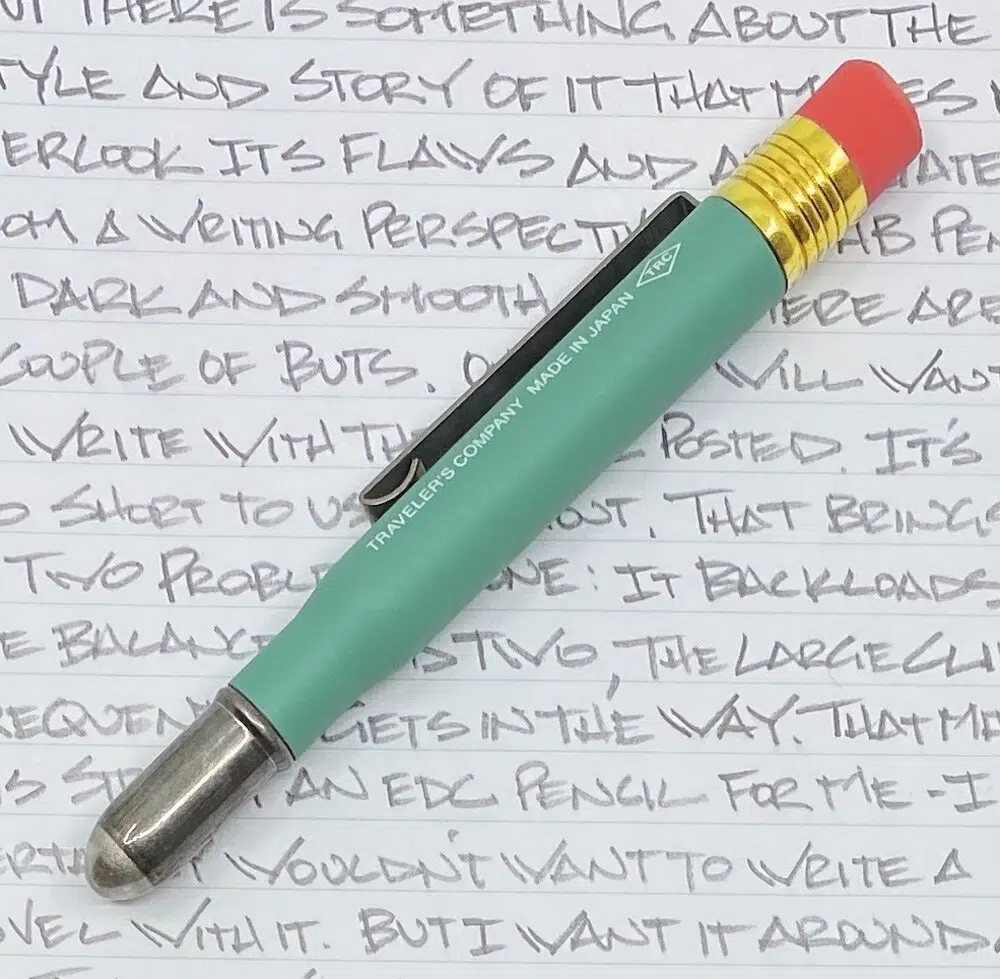 THERE IS SOMETHING ABOUT THE
TYLE AND STORY OF IT THAT
ERLOOK ITS FLAWS AND
OM A WRITING PERSPECTI PEN
DARK AND SMOOTH HERE ARE
COUPLE OF BUTS. WILL WANT
WRITE WITH THE POSTED. IT'S
O SHORT TO US OUT. THAT BRINGS
TWO PROBLE ONE: IT BACKLOADS
E BALANCE IS TWO, THE LARGE CLI
REQUEN GETS IN THE WAY. THAT
IS AN EDC PENCIL FOR ME - I
WOULDN'T WANT TO WRITE A
VEL WITH IT. BUT I WANT IT AROUND.
TRAVELER'S COMPANY MADE IN JAPAN TRC